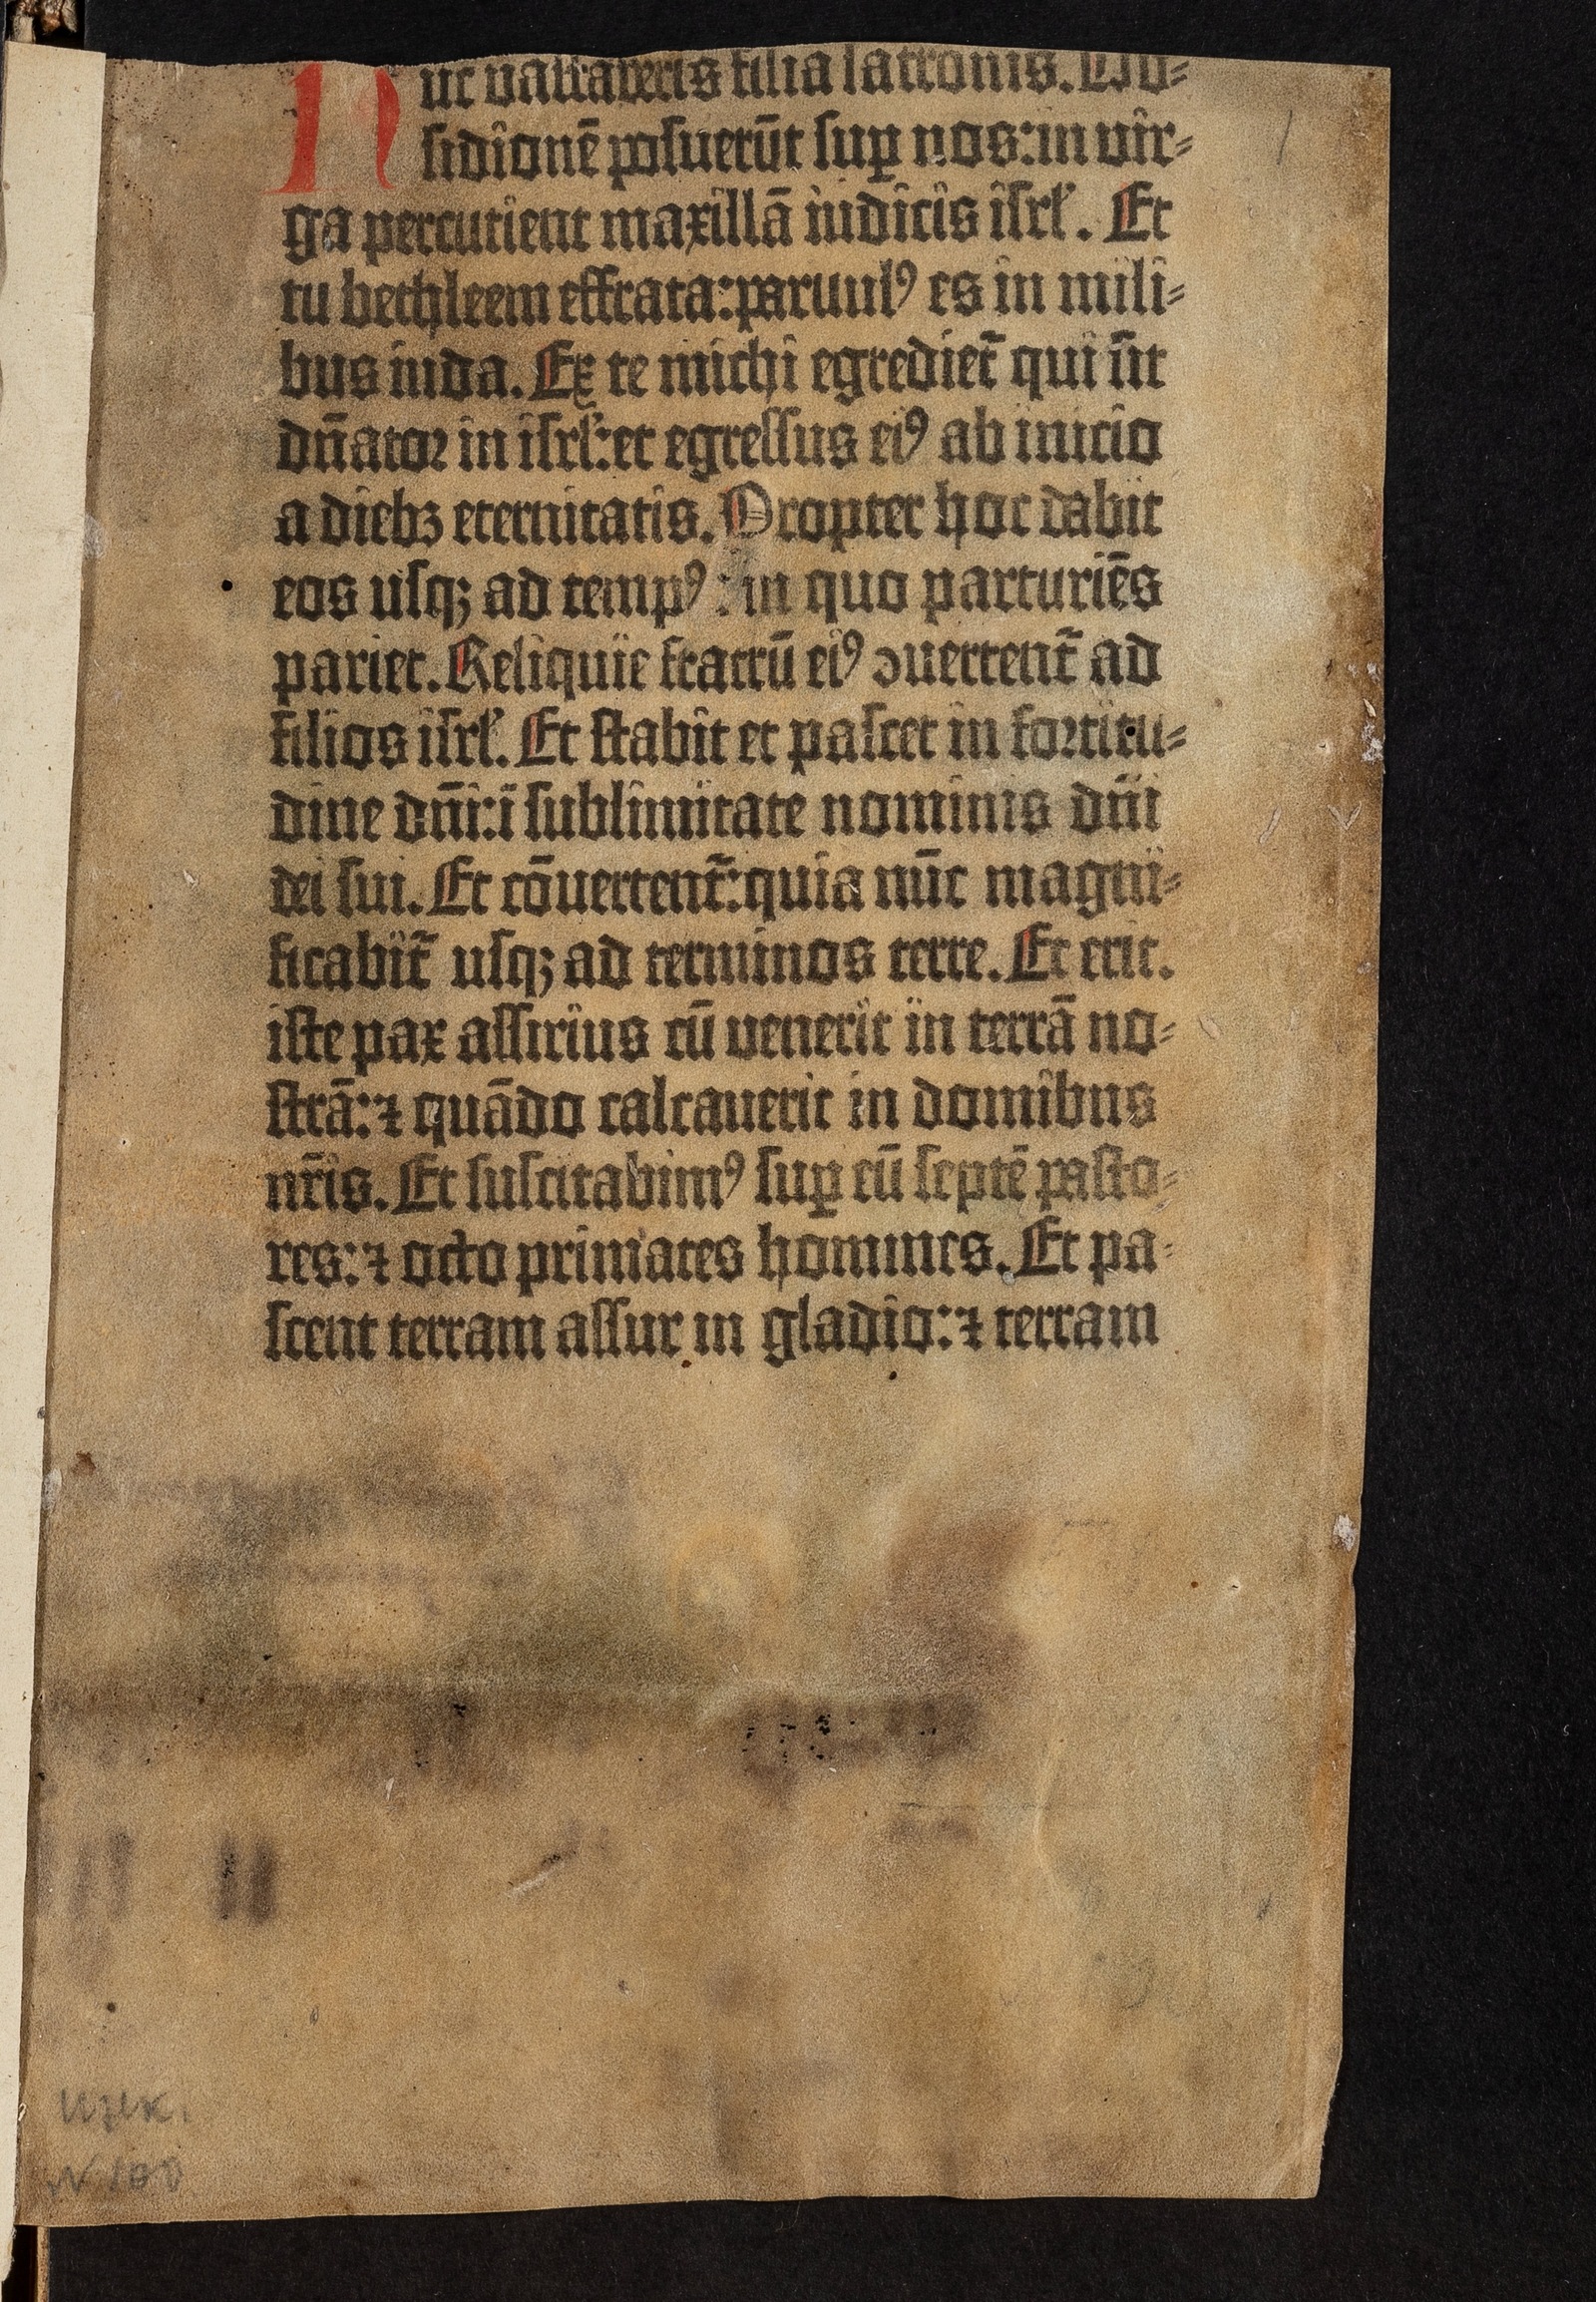 Nuc vastaberis filia latronis. Ob⸗
sidionē posuerūt sup̱ nos: in vir⸗
ga percutient maxillā iudicis isrl̓. Et
tu bethleem effrata: paruulꝰ es in mili⸗
bus iuda. Ex te michi egrediet̃ qui sit
dn̄ator in isrl̓: et egressus eiꝰ ab inicio
a diebꝫ eternitatis. Propter hoc dabit
eos usqꝫ ad tempꝰ: in quo parturiēs
pariet. Reliquie fratrū eiꝰ ↄuertent̃ ad
filios isrl̓. Et stabit et pascet in fortitu⸗
dine dn̄i: ī sublimitate nominis dn̄i
dei sui. Et cōuertent̃: quia nūc magni⸗
ficabit̃ usqꝫ ad terminos terre. Et erit.
iste pax assirius cū venerit in terrā no⸗
strā: ⁊ quādo calcauerit in domibus
nr̄is. Et suscitabimꝰ sup̱ eū septē pasto⸗
res: ⁊ octo primates homines. Et pa⸗
scent terram assur in gladio: ⁊ terram